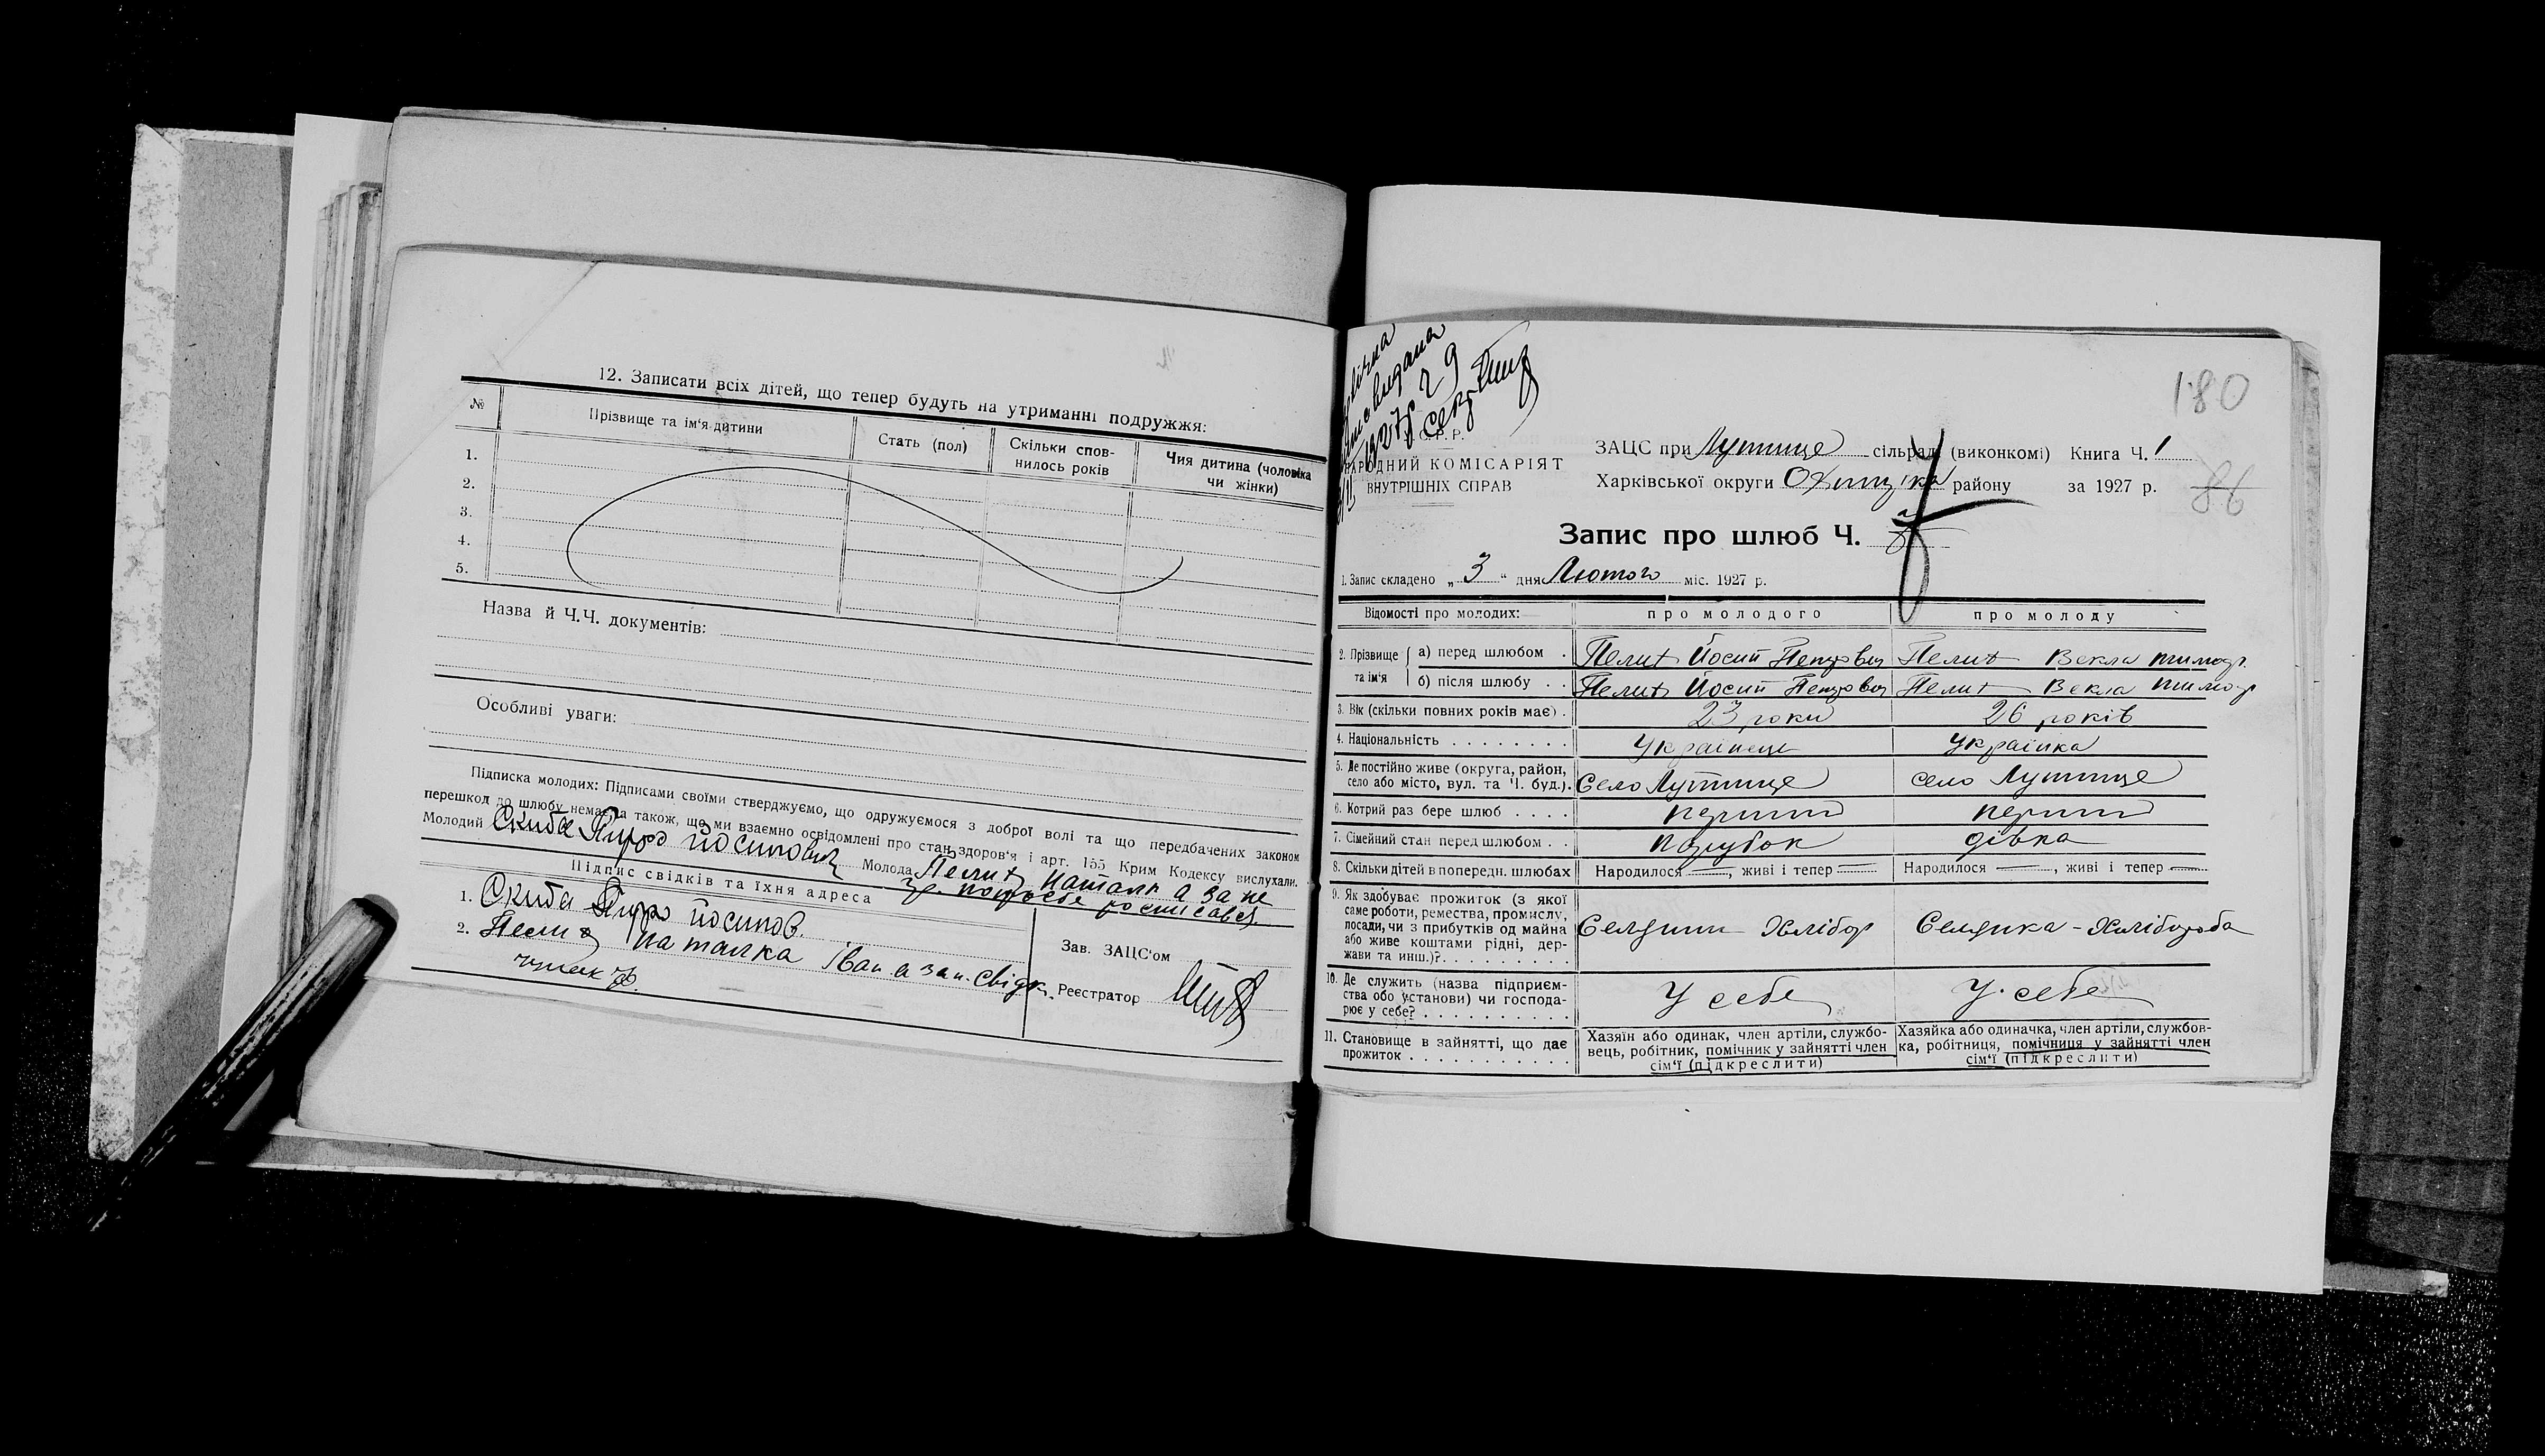 12. Записати всіх дітей, що тепер будуть на утриманні подружжя:
№ Прізвище та ім'я дитини Стать (пол) Скільки сповнилось років Чия дитина (чоловіка чи жінки)
1.
2.
3.
4.
5.
Назва й Ч.Ч. документів:
Особливі уваги:
Підписка молодих: Підписами своїми стверджуємо, що одружуємося з доброї волі та що передбачених законом
перешкод до шлюбу немає, а також, що ми взаємно освідомлені про стан здоров'я і арт. 155 Крим Кодексу вислухали.
Молодий Скиба Йосипович Молода
Підпис свідків та їхня адреса
1. Скиба Йосипов.
2. Наталка
Зав. ЗАЦС'ом
Реєстратор
НАРОДНИЙ КОМІСАРІЯТ
ВНУТРІШНІХ СПРАВ
180
86
ЗАЦС при Лутище сільраді (виконкомі) Книга Ч. 1
Харківської округи району за 1927 р.
Запис про шлюб Ч.
1. Запис складено „3" дня Лютого міс. 1927 р.
Відомості про молодих: про молодого про молоду
2. Прізвище та ім'я
а) перед шлюбом . Йосип Петрович Векла
б) після шлюбу . . Йосип Петрович Векла
3. Вік (скільки повних років має) . 23 роки 26 років
4. Національність . . . . . . . . Українець Українка
5. Де постійно живе (округа, район, село або місто, вул. та Ч. буд.). Село Лутище село Лутище
6. Котрий раз бере шлюб . . . .
7. Сімейний стан перед шлюбом . . парубок дівка
8. Скільки дітей в попередн. шлюбах Народилося, живі і тепер Народилося, живі і тепер
9. Як здобуває прожиток (з якої
саме роботи, ремества, промислу,
посади, чи з прибутків од майна
або живе коштами рідні, дер-
жави та инш.)?. . . . . . . . . Селянин Хлібор Селянка - Хлібороба
10. Де служить (назва підприєм-
ства або установи) чи господа-
рює у себе? . . . . . . . . . . У себе У себе
11. Становище в зайнятті, що дає
прожиток . . . . . . . . . . .
Хазяїн або одинак, член артілі, службо-
вець, робітник, помічник у зайнятті член
сім'ї (підкреслити)
Хазяйка або одиначка, член артілі, службов-
ка, робітниця, помічниця у зайнятті член
сім'ї (підкреслити)